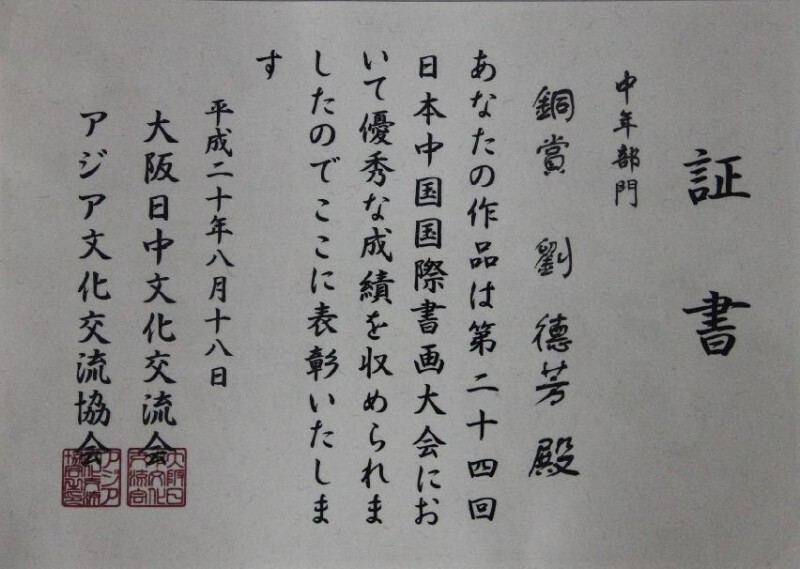 証書
中年部門
銅賞 劉徳芳殿
あなたの作品は第二十四回
日本中国国際書画大会にお
いて優秀な成績を収められま
したのでここに表彰いたしま
す
平成二十年八月十八日
大阪日中文化交流会
アジア文化交流協会